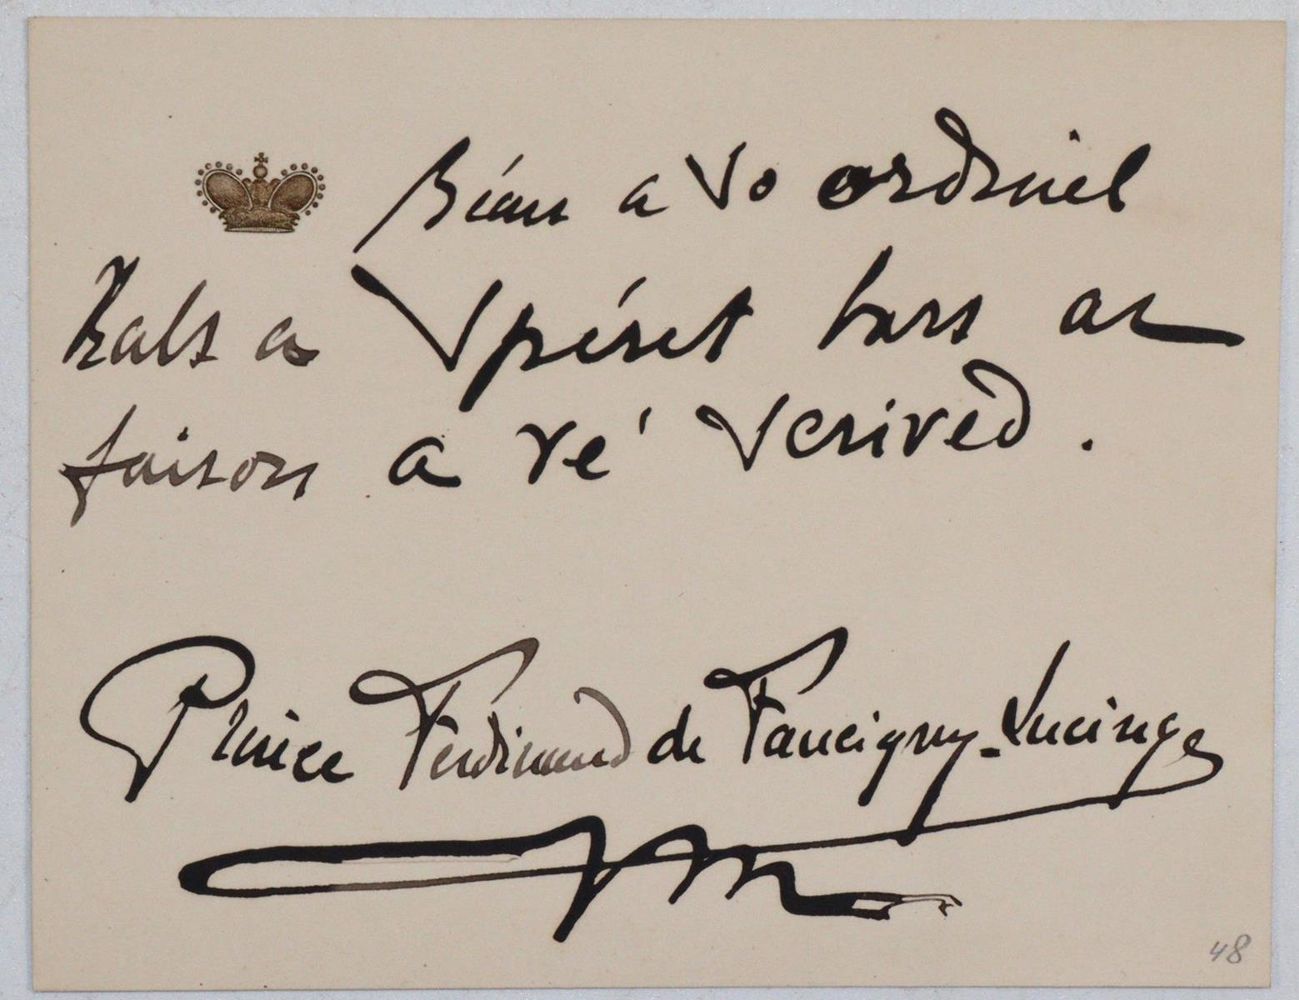 Béan a vo ordinel
Kals a Spéret bars ar
faison a ré Scrived.
Prince Ferdinand de Faucigny-Lucinge
48